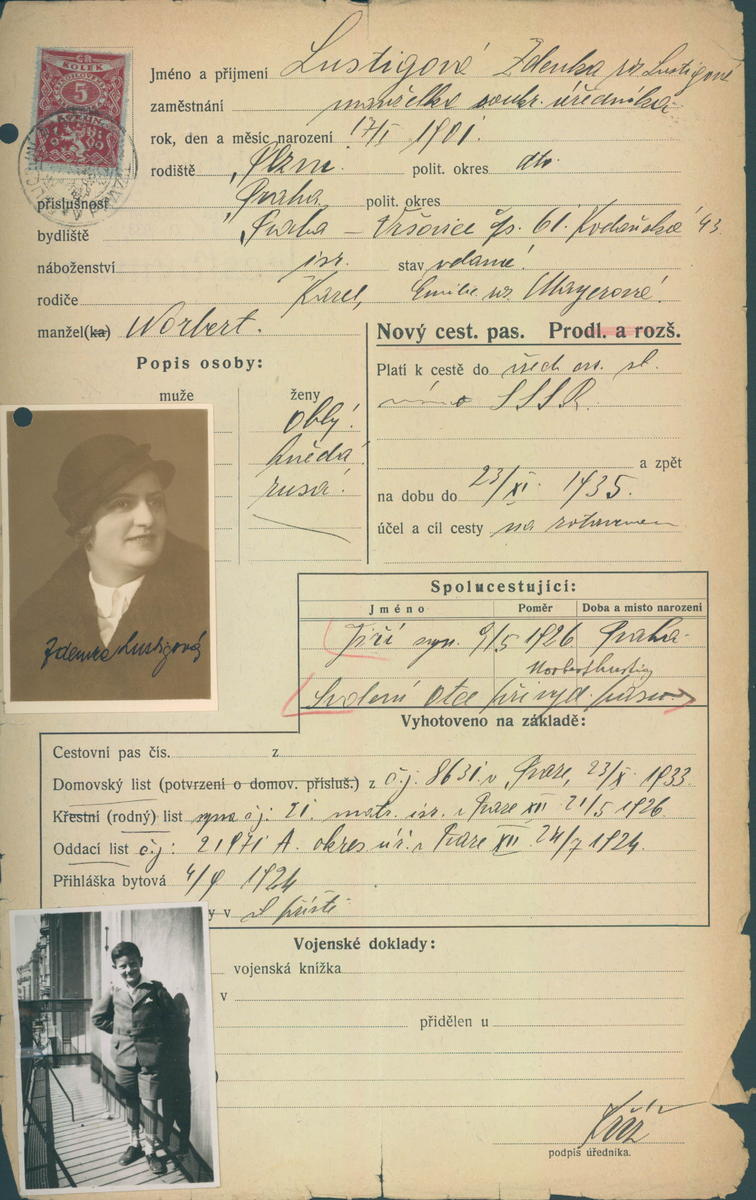 KOLEK
5
Jméno a příjmení Lustigová Zdenka roz. Lustigová
zaměstnání manželka soukr. úředníka
rok, den a měsíc narození 17/I 1901.
rodiště Plzni. polit. okres dto.
příslušnost Praha polit. okres
bydliště Praha – Vršovice čp. 61. Kodaňská 43.
náboženství isr. stav vdaná.
rodiče Karel, Emilie roz. Mayerová.
manžel(ka) Norbert.
Nový cest. pas. Prodl. a rozš.
Popis osoby:
muže ženy
oblý.
hnědá.
rusá.
Platí k cestě do všech ev. st.
mimo SSSR.
a zpět
na dobu do 23/XI. 1935.
účel a cíl cesty na zotavenou
Zdenka Lustigová
Spolucestující:
Jméno Poměr Doba a místo narození
Jiří syn. 9/5 1926 Praha
Norbert Lustig
Svolení otce při vyd. pasu
Vyhotoveno na základě:
Cestovní pas čís. z
Domovský list (potvrzení o domov. přísluš.) z č.j. 8631. v Praze, 23/X. 1933.
Křestní (rodný) list syna č.j: 21. matr. isr. v Praze XII 21/5 1926.
Oddací list č.j: 21971 A. okres. úř. v Praze XII. 24/7 1924.
Přihláška bytová 1924
y v
Vojenské doklady:
vojenská knížka
v
přidělen u
)
Kříž
podpis úředníka.